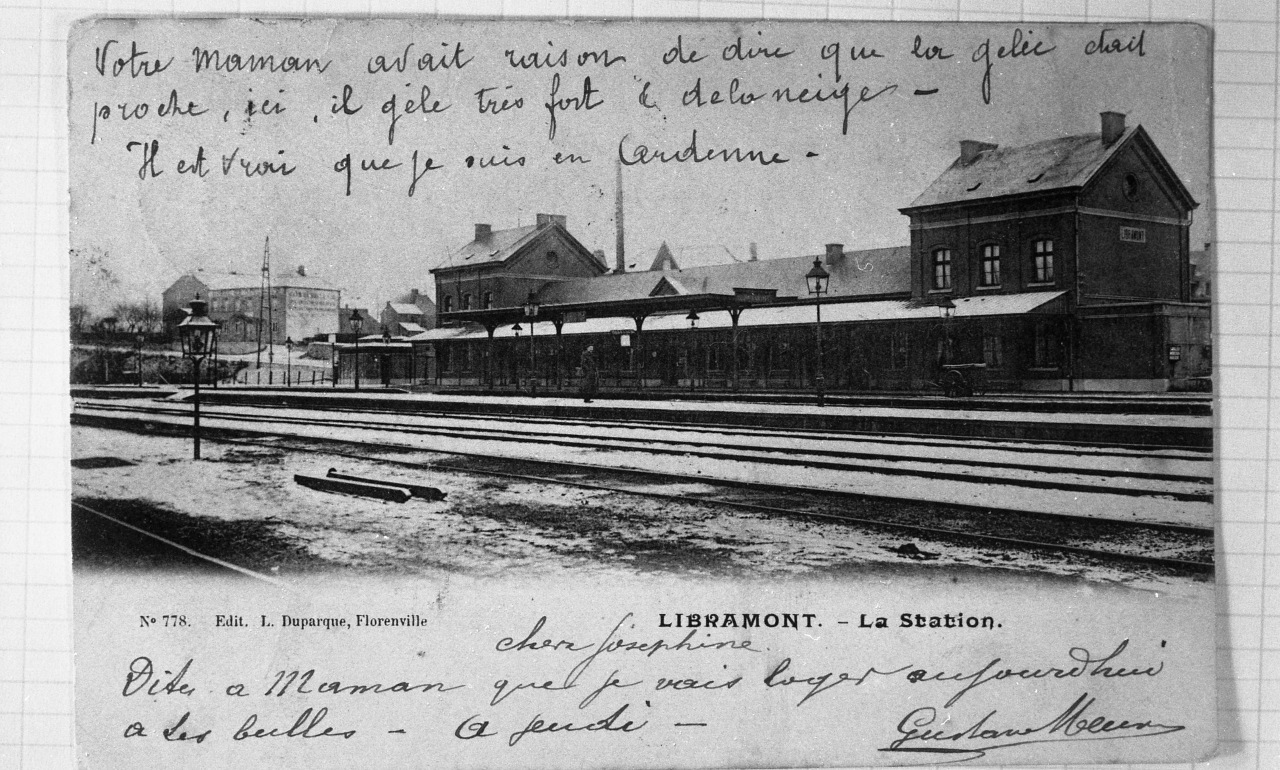 Votre Maman avait raison de dire que la gelée était
proche, ici, il gèle très fort & de la neige -
Il est vrai que je suis en Ardenne -
LIBRAMONT
No 778. Edit. L. Duparque, Florenville
LIBRAMONT. - La Station.
chère Joséphine.
Dites a Maman que je vais loger aujourd'hui
a Les bulles - A jeudi -
Gustave